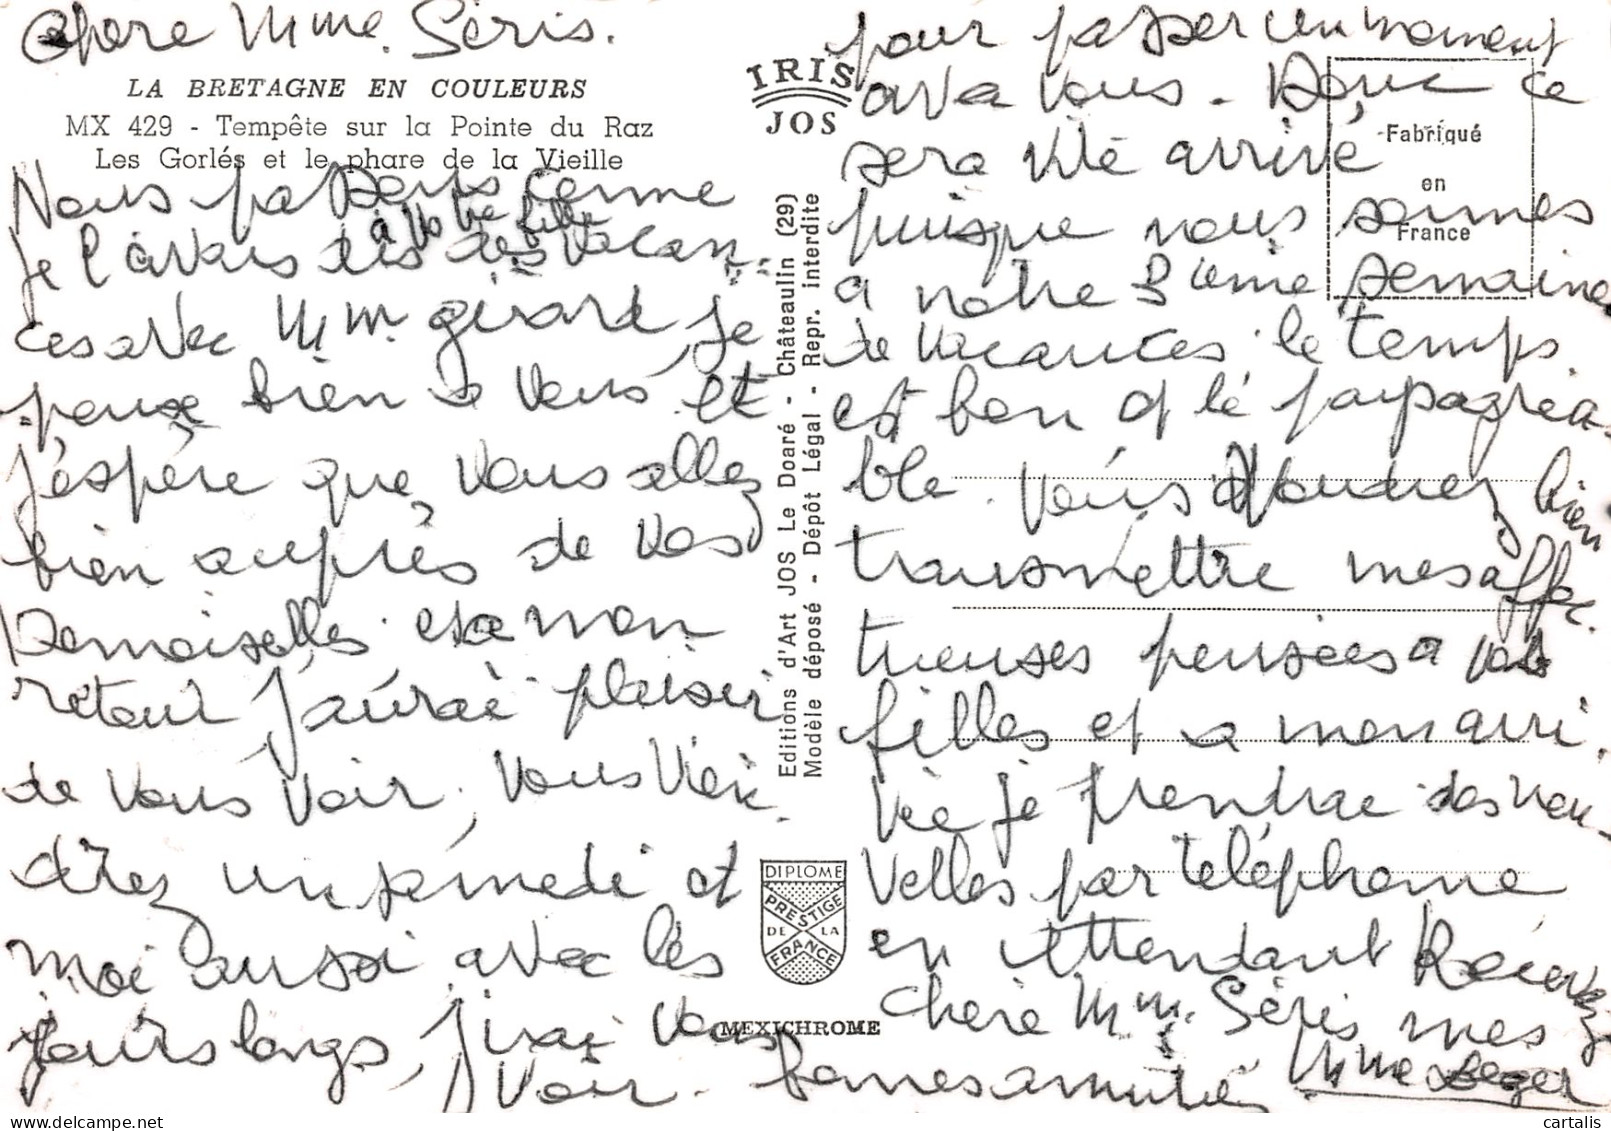 Chere Mme. Séris.
LA BRETAGNE EN COULEURS
MX 429 - Tempête sur la Pointe du Raz
Les Gorlés et le phare de la Vieille
Nous passons comme
à votre fille
je l'avais dis des vacan-
ces avec Mme girard, je
pense bien a vous et
j'espère que vous allez
bien auprès de vos
Demoiselles a mon
retour j'aurai plaisir
de vous voir, vous vien-
drez un samedi et
moi aussi avec les
jours longs, j'irai vous
voir.
IRIS
JOS
Editions d'Art JOS Le Doaré - Châteaulin (29)
Modèle déposé - Dépôt Légal - Repr. interdite
DIPLOME
PRESTIGE
DE LA
FRANCE
MEXICHROME
Fabriqué
en
France
pour passer un moment
avec vous. Donc ce
sera vite arrivé
puisque nous sommes
a notre 3ieme semaine
de vacances le temps
est bon et
ble. Vous voudrez bien
transmettre mes affec-
tueuses pensées a vos
filles et a mon arri-
vée je prendrai des nou-
velles par téléphone
en attendant Recevez
chère Mme Séris mes
bonnes amitiés Mme Leger